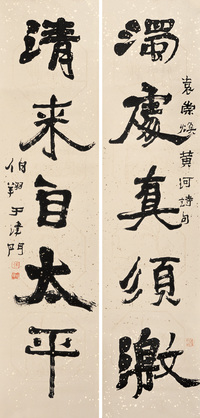 濁處真須激
袁崇煥黃河詩句
清來自太平
伯翔於津門